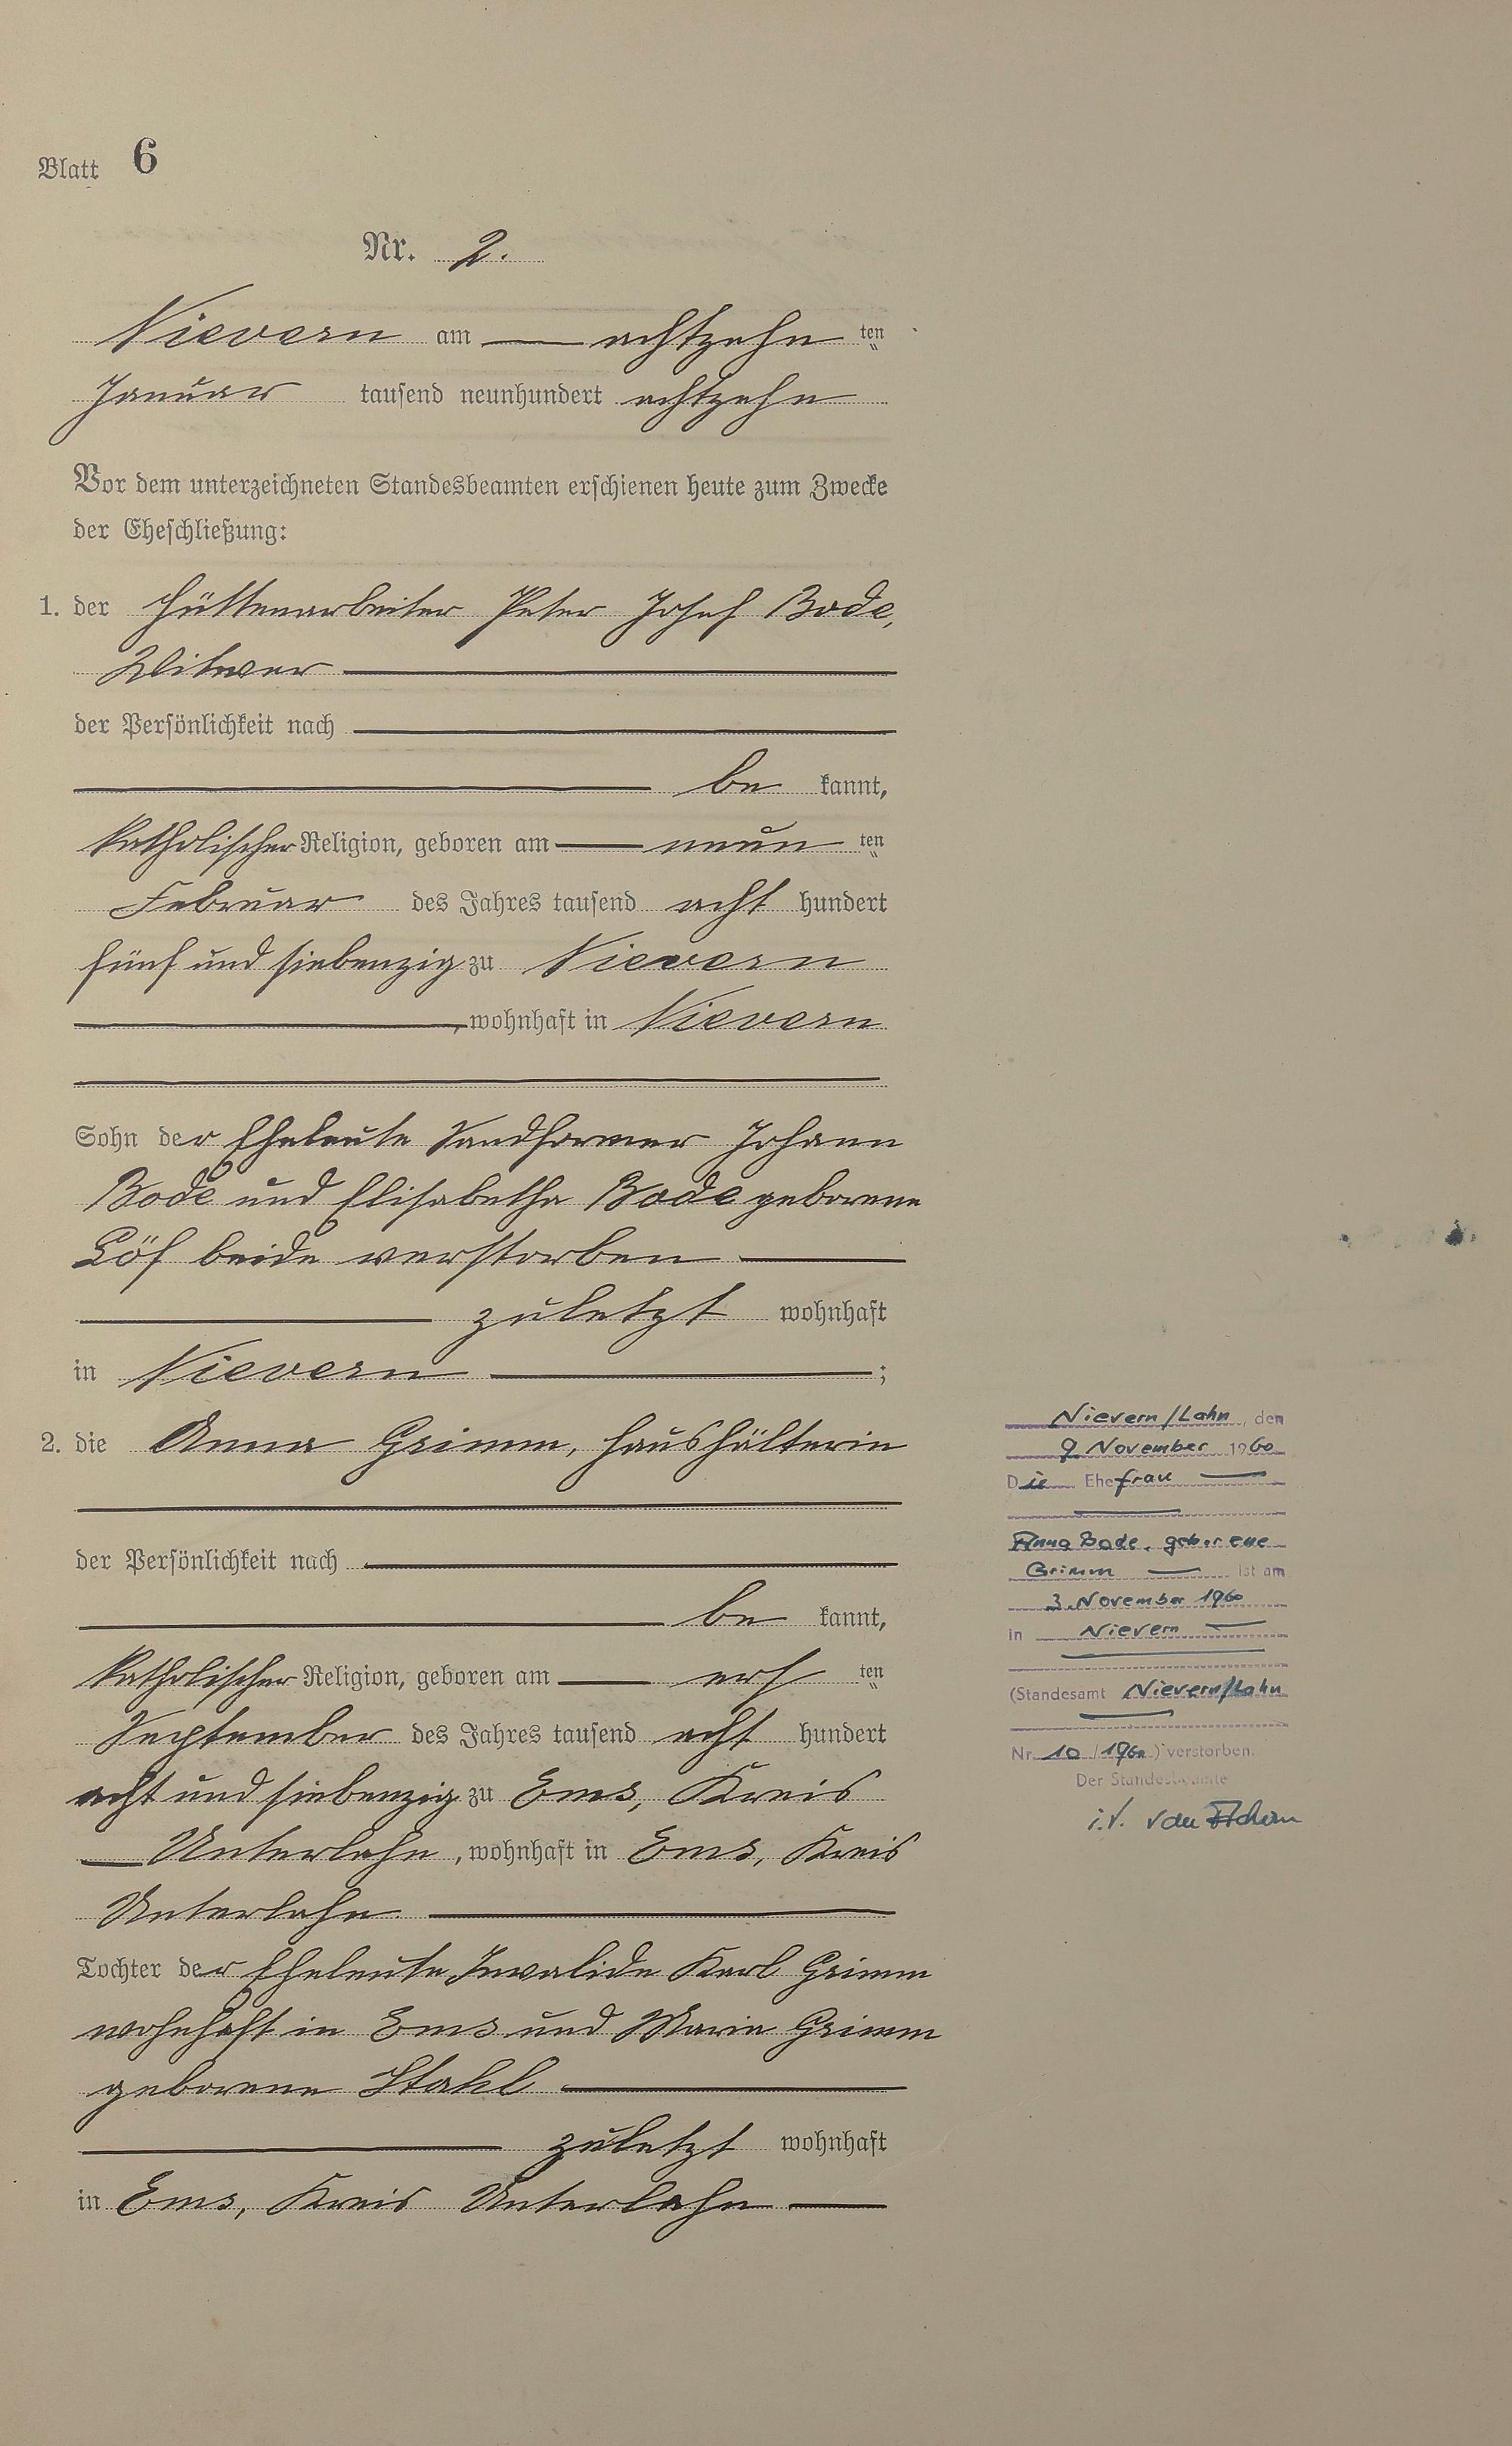 Blatt 6
Nr. 2.
Nievern am achtzehn ten
Januar tausend neunhundert achtzehn
Vor dem unterzeichneten Standesbeamten erschienen heute zum Zwecke
der Eheschließung:
1. der Hüttenarbeiter Peter Josef Bode,
Witwer
der Persönlichkeit nach
be kannt,
katholischer Religion, geboren am neun ten
Februar des Jahres tausend acht hundert
fünf und siebenzig zu Nievern
, wohnhaft in Nievern
Sohn der Eheleute Sandformer Johann
Bode und Elisabetha Bode geborene
Löf beide verstorben
zuletzt wohnhaft
in Nievern ;
2. die Anna Grimm, Haushälterin
der Persönlichkeit nach
be kannt,
katholischer Religion, geboren am ers ten
September des Jahres tausend acht hundert
acht und siebenzig zu Ems, Kreis
Unterlahn, wohnhaft in Ems, Kreis
Unterlahn
Tochter der Eheleute Invalide Karl Grimm
wohnhaft in Ems und Maria Grimm
geborene Stahl
zuletzt wohnhaft
in Ems, Kreis Unterlahn
Nievern/Lahn, den
9. November 1960
Die Ehefrau
Anna Bode, geborene
Grimm ist am
3. November 1960
in Nievern
(Standesamt Nievern/Lahn
Nr. 10 / 1960) verstorben.
Der Standesbeamte
i.V.